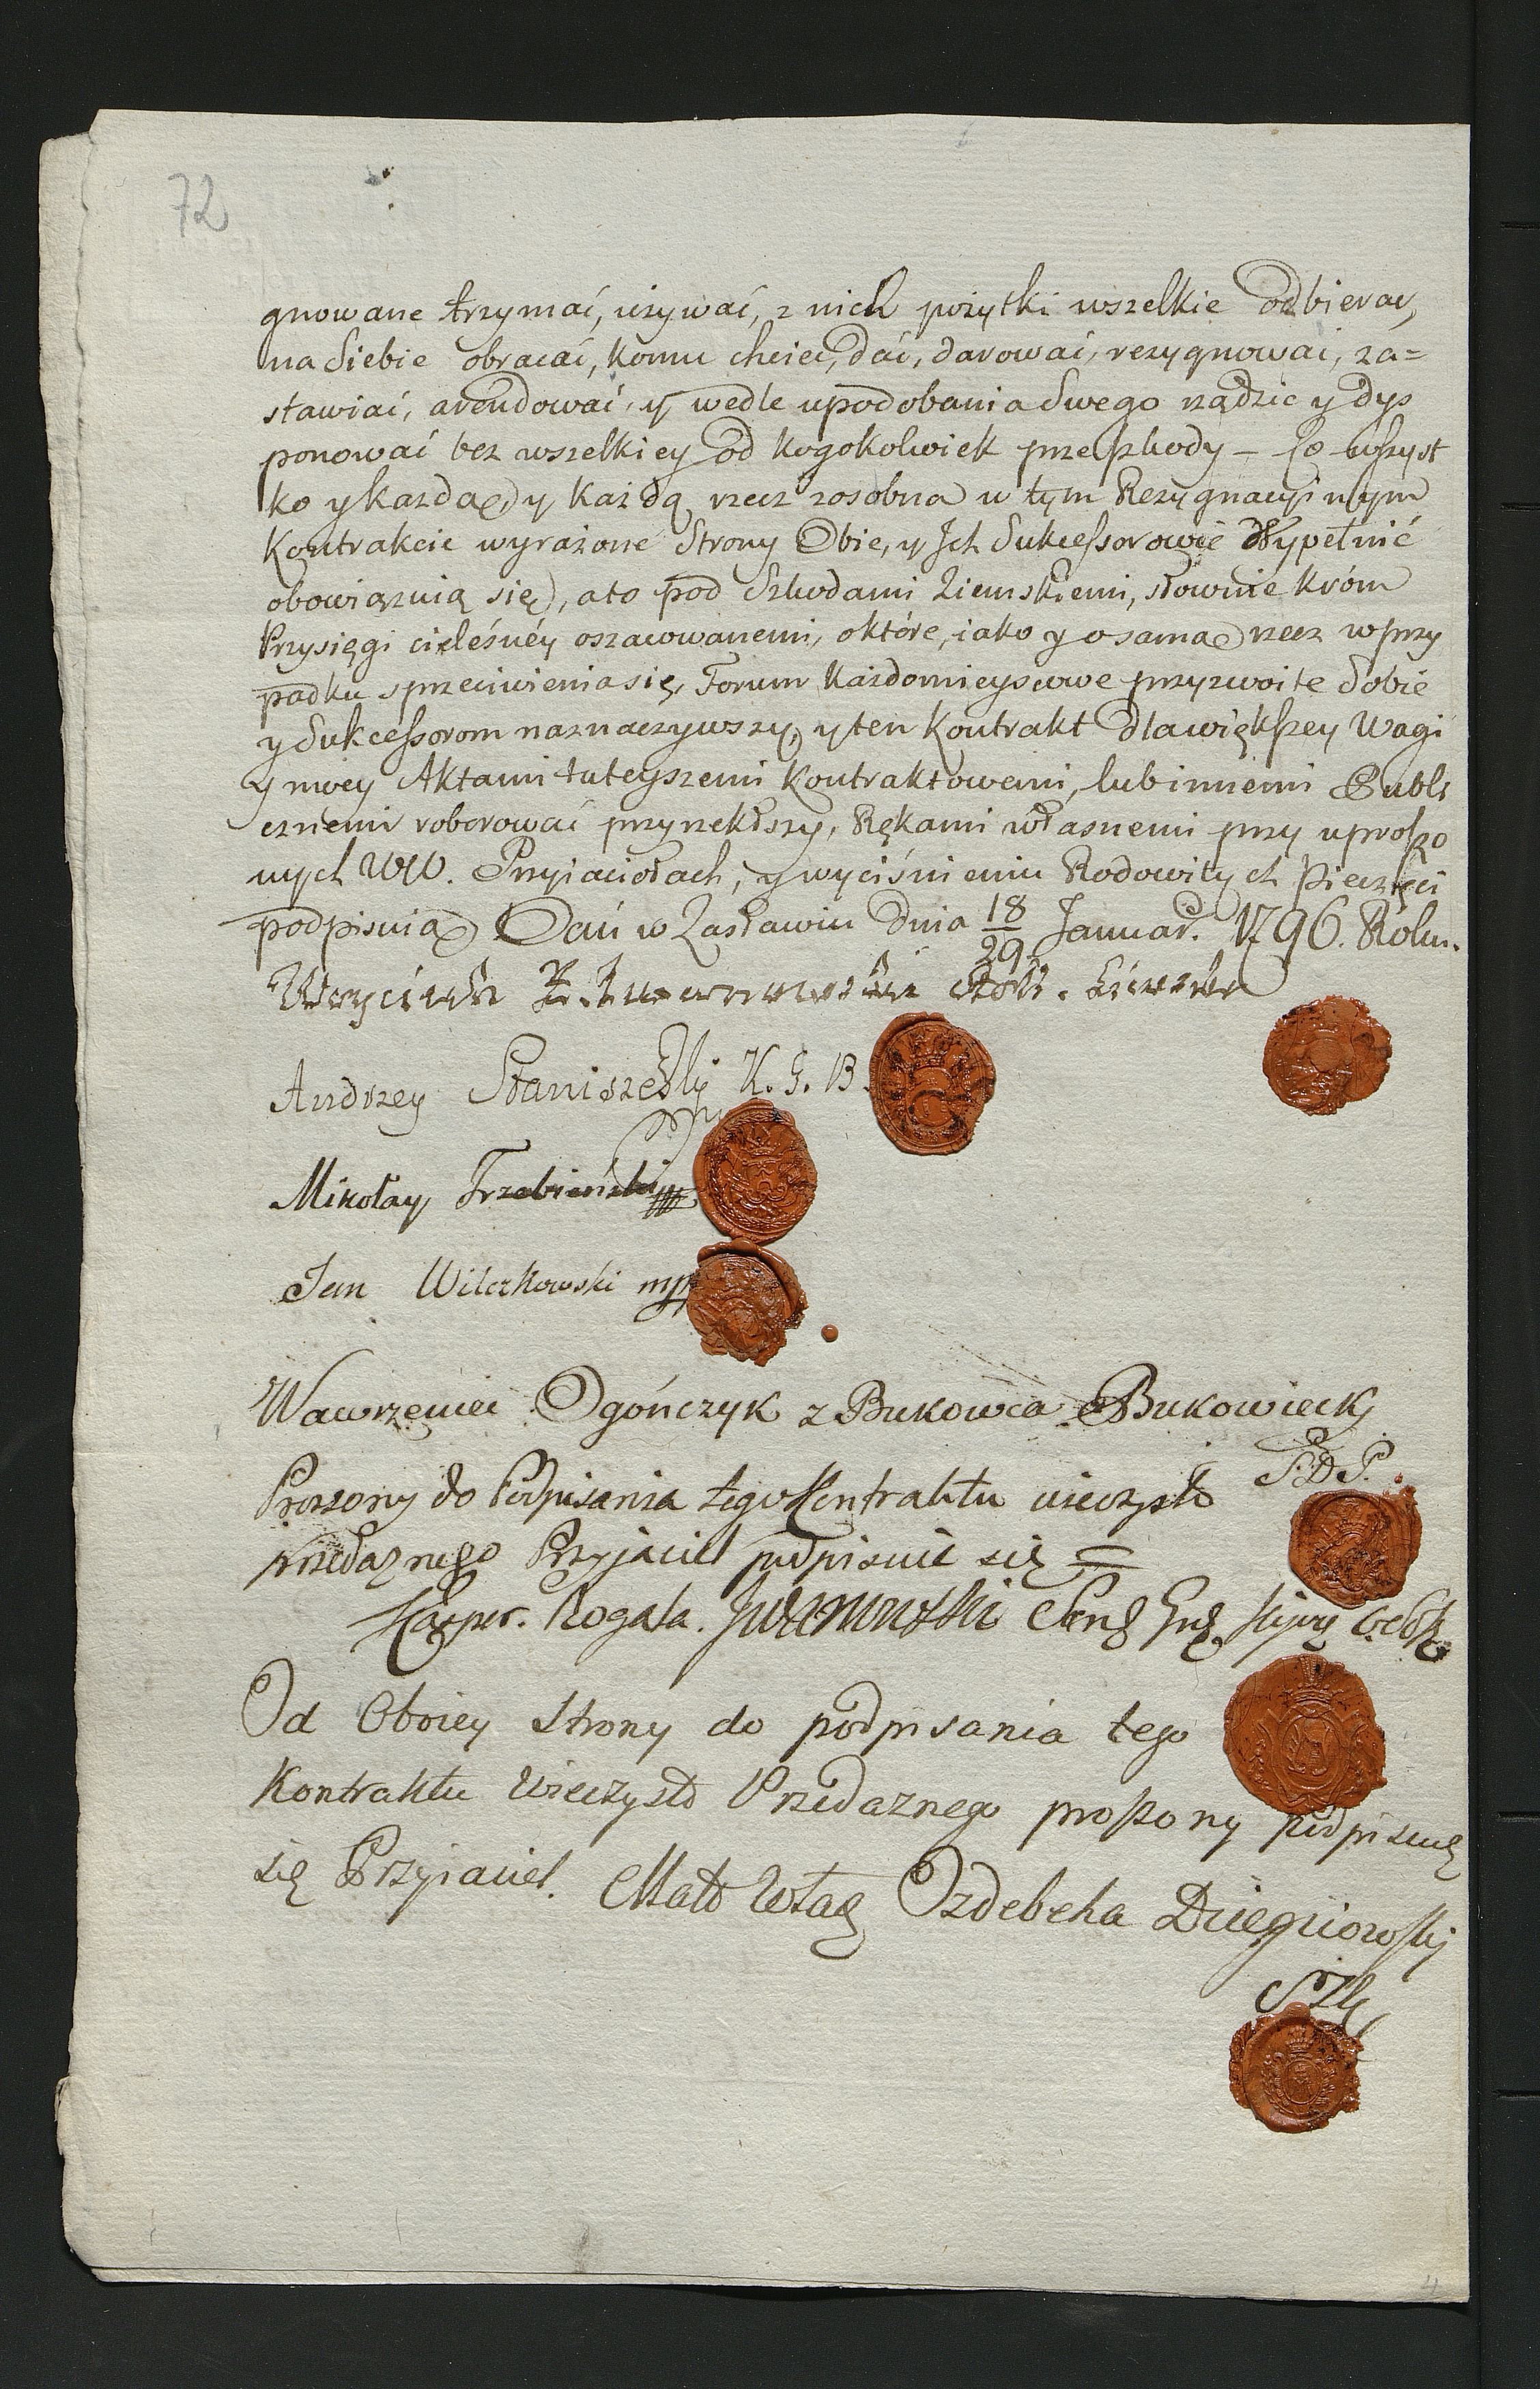 72
gnowane trzymać, używać, z nich pożytki wszelkie odbierac,
na Siebie obracać, komu chcieć, dać, darować, rezygnować, za=
stawiać, arendować, y wedle upodobania Swego rządzic y dys
ponować bez wszelkiey od kogokolwiek przeszkody – Co wszyst
ko y każdą, y każdą rzecz zosobna w tym Rezygnacyinym
Kontrakcie wyrażone Strony Obie, y Ich Sukcessorowie Wypełnić
obowiązuią się, a to pod Szkodami Ziemskiemi, słownie króm
Przysięgi cieleśnéy oszacowanemi, o które, iako y o samą rzecz w przy
padku sprzeciwienia się, Forum każdomieyscowe przyzwoite Sobie
y Sukcessorom naznaczywszy, y ten Kontrakt dla większey Wagi
y mocy Aktami tuteyszemi Kontraktowemi, lub innemi Publi
cznemi roborować przyrzekłszy, Rękami własnemi przy uproszo
nych WW. Przyiaciołach, y wyciśnieniu Rodowitych Pieczęci
podpisuią Dań w Zasławiu Dnia 18/29 Januar. 1796. Roku.
Andrzey Staniszewski K. G. B.
Mikołay Trzebieński
Jan Wilczkowski mp
Wawrzeniec Ogończyk z Bukowca Bukowiecki
P. D. P.
Proszony do Podpisania tego Kontraktu wieczysto
przedażnego Przyjaciel podpisuie się =
Kasper. Rogala.
Od Obóiey Strony do podpisania tego
Kontraktu Wieczysto Przedaznego proszony podpisuię
się Przyiaciel.
4